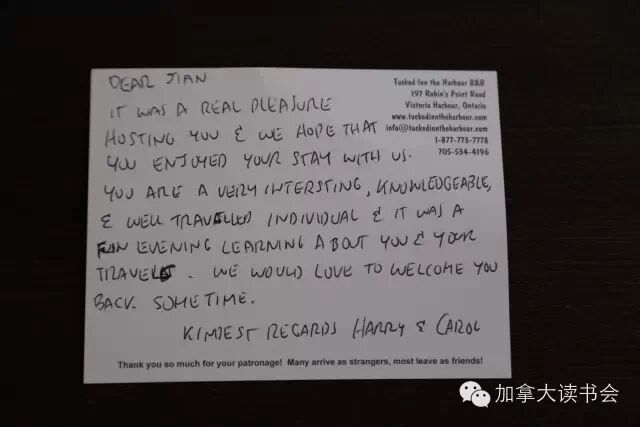 DEAR JIAN
IT WAS A REAL PLEASURE
HOSTING YOU & WE HOPE THAT
YOU ENJOYED YOUR STAY WITH US.
YOU ARE A VERY INTERSTING, KNOWLEDGEABLE,
& WELL TRAVELLED INDIVIDUAL & IT WAS A
FUN EVENING LEARNING ABOUT YOU & YOUR
TRAVELS. WE WOULD LOVE TO WELCOME YOU
BACK SOMETIME.
KINDEST REGARDS HARRY & CAROL
Tucked Inn the Harbour B&B
197 Robin's Point Road
Victoria Harbour, Ontario
www.tuckedinntheharbour.com
info@tuckedinntheharbour.com
1-877-773-7778
705-534-4196
Thank you so much for your patronage! Many arrive as strangers, most leave as friends!
加拿大读书会